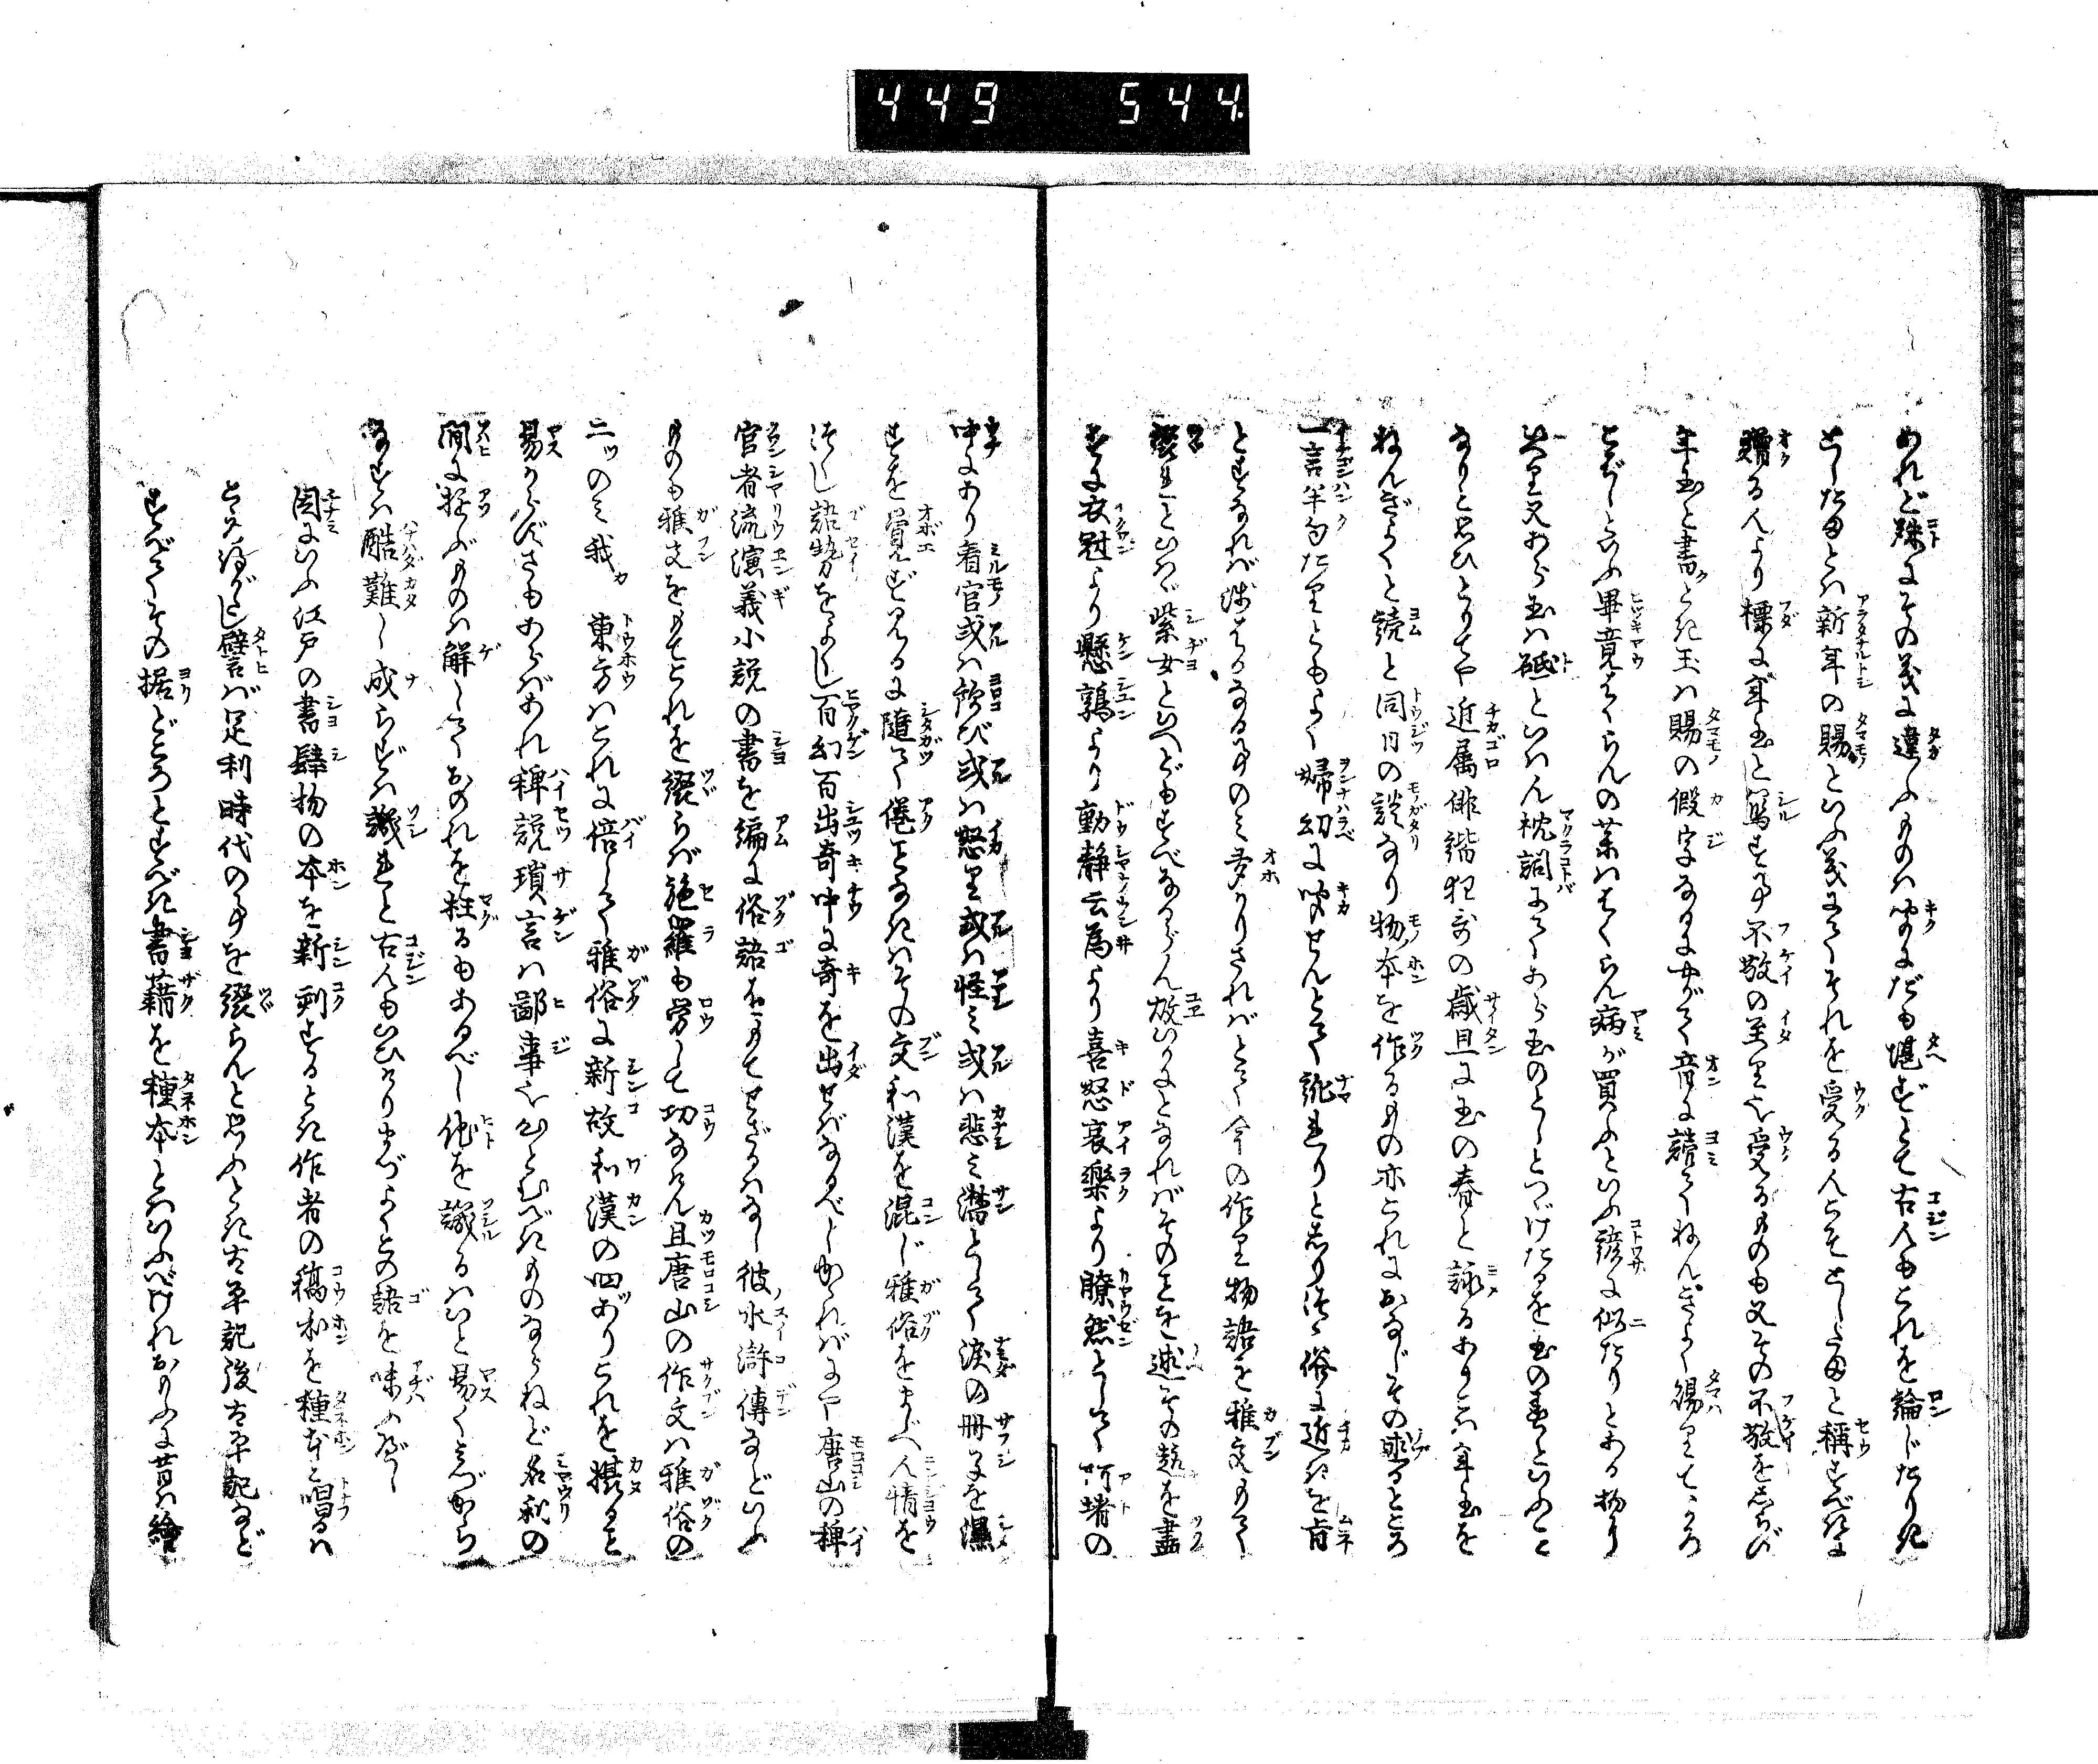 449 544
あれど殊にその義に違ふものは聞にだも堪ずとて古人もこれを論じたりき
としだまとは新年の賜といふ義にてそれを受る人こそとしだまと称すべけれ
贈る人より標に年玉と写す事不敬の至りを受るものも又その不敬をしらず
年玉と書とき玉は賜の假字なるにやがて音に読てねんぎよく賜りて
といふ畢竟はくらんの薬ははくらん病が買ふといふ諺に似たりとある物
又あら玉は砥といはん枕詞にてあら玉のとしとつゞけたるを玉の春といふこと
なりと思ひとりてや近属俳諧狂哥の歳旦に玉の春と詠るあり年玉を
ねんぎよくと読と同日の談なり物の本を作るもの亦これにおなじその述るところ
一言半句たりともよく婦幼に聞せんとて訛れりとしりつゝ俗に近きを旨
とすなれば事のみ多かりさればとて今の作り物語を雅文もて
綴れといはゞ紫女といへどもすべなからん故いかにとなればそのことを述その趣を盡
すに衣冠より懸鶉より動静云為より喜怒哀樂より瞭然として阿堵の
中にあり看官或は歓び或は怒り或は怪み或は悲み潸として涙の冊子を濕
すを覚ず見るに随て倦ことなきはその文和漢を混じ雅俗をまじへ人情を
語勢をよくし百幻百出奇中に奇を出せばなるべしかゝればにや唐山の稗
官者流演義小説の書を編に俗語をもてせざるはなし彼水滸傳などいふ
ものも雅文をもてこれを綴らば施羅も労して功なけん且唐山の作文は雅俗の
二ッのみ我東方はこれに倍して雅俗に新故和漢の四ッありこれを撰こと
易からずさもあらばあれ稗説瑣言は鄙事を必とすべきものならねど名利の
間に遊ぶものは解してをのれを枉るもあるべし他を譏るはいと易くみづから
なすは酷難し成らずは譏れと古人もいひけりまづよくこの語を味ふべし
因にいふ江戸の書肆物の本を新刻するとき作者の稿本を種本と唱るは
こゝろ得がたし譬ば足利時代の事を綴らんと思ふとき太平記後太平記など
すべてその据どころとすべき書籍を種本とはいふべけれおもふに昔は繪